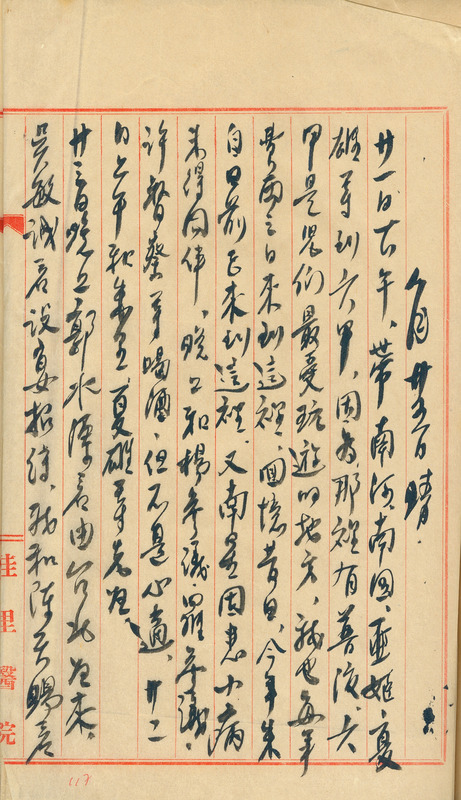 八月廿五日 晴.
廿一日下午、帶南河、南圖、亞姬、夏
雄等到六甲、因為那裡有善後、六
甲是兒們最愛玩遊的地方、我也每年
費兩三日來到這裡、回憶昔日、今年朱
自日前已來到這裡、又南星因患小病
未得同伴、晚上和楊參議、羅參議、
許智 蔡 等喝酒、但不是心適、廿二
日上午 夏雄等先歸、
廿三日晚上郭水潭君由台北歸來、
吳敏誠君設宴招待、我和陳天賜君
佳里醫院
117